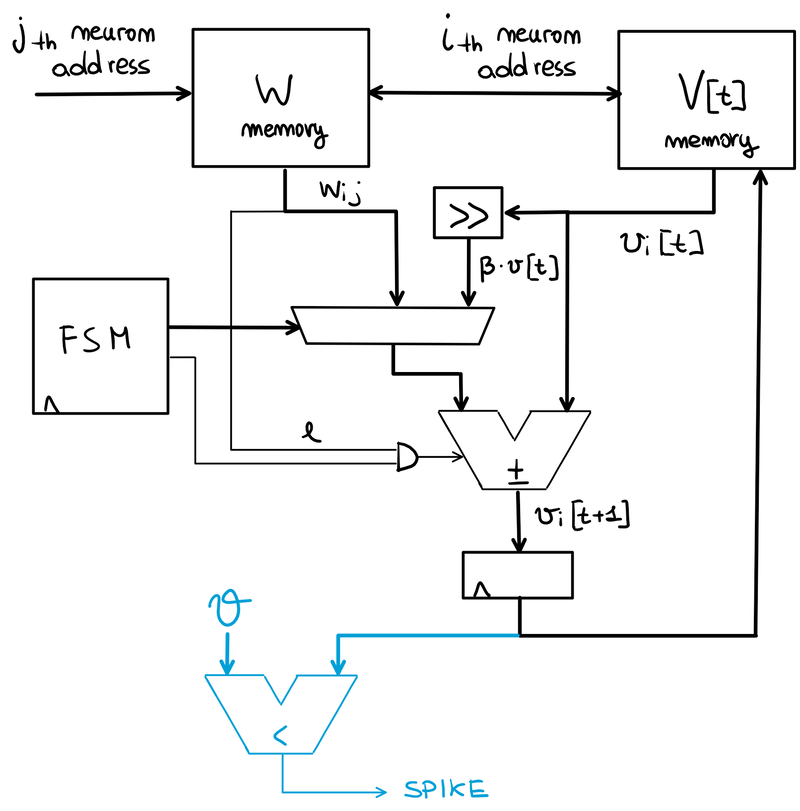 j-th neuron
address
W
memory
i-th neuron
address
V[t]
memory
wij
>>
vi[t]
β·v[t]
FSM
e
±
vi[t+1]
ϑ
<
SPIKE